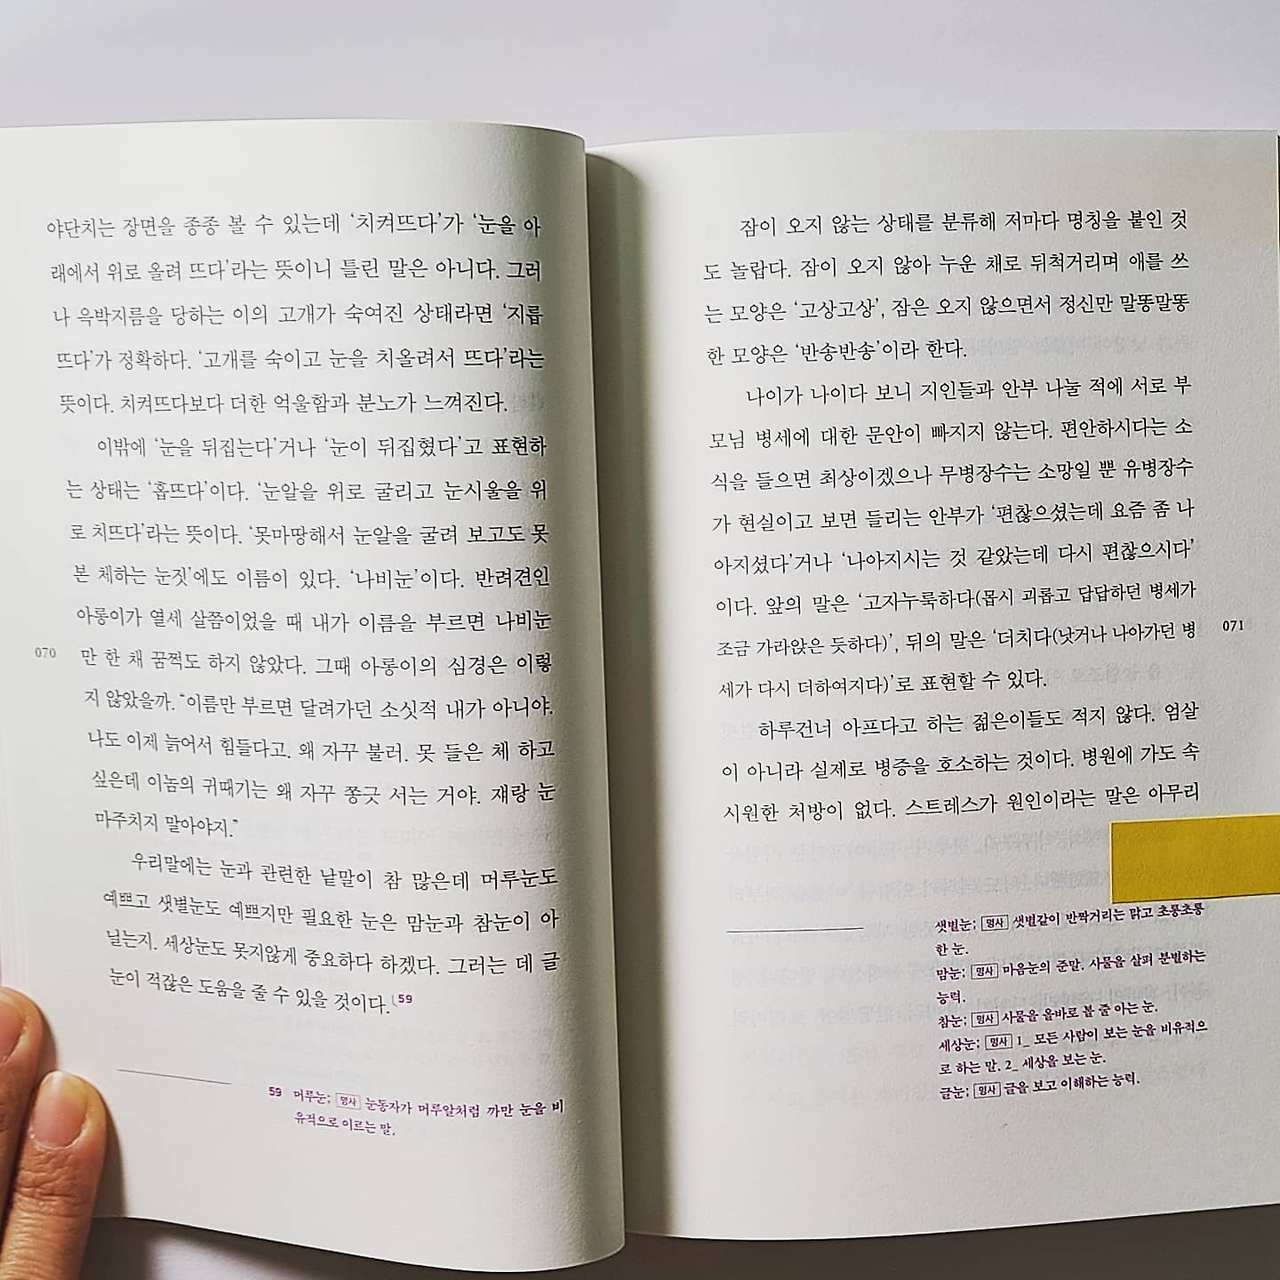 야단치는 장면을 종종 볼 수 있는데 ‘치켜뜨다’가 ‘눈을 아
래에서 위로 올려 뜨다’라는 뜻이니 틀린 말은 아니다. 그러
나 윽박지름을 당하는 이의 고개가 숙여진 상태라면 ‘지릅
뜨다’가 정확하다. ‘고개를 숙이고 눈을 치올려서 뜨다’라는
뜻이다. 치켜뜨다보다 더한 억울함과 분노가 느껴진다.
이밖에 ‘눈을 뒤집는다’거나 ‘눈이 뒤집혔다’고 표현하
는 상태는 ‘홉뜨다’이다. ‘눈알을 위로 굴리고 눈시울을 위
로 치뜨다’라는 뜻이다. ‘못마땅해서 눈알을 굴려 보고도 못
본 체하는 눈짓’에도 이름이 있다. ‘나비눈’이다. 반려견인
아롱이가 열세 살쯤이었을 때 내가 이름을 부르면 나비눈
만 한 채 꿈쩍도 하지 않았다. 그때 아롱이의 심경은 이렇
지 않았을까. “이름만 부르면 달려가던 소싯적 내가 아니야.
나도 이제 늙어서 힘들다고. 왜 자꾸 불러. 못 들은 체 하고
싶은데 이놈의 귀때기는 왜 자꾸 쫑긋 서는 거야. 쟤랑 눈
마주치지 말아야지.”
우리말에는 눈과 관련한 낱말이 참 많은데 머루눈도
예쁘고 샛별눈도 예쁘지만 필요한 눈은 맘눈과 참눈이 아
닐는지. 세상눈도 못지않게 중요하다 하겠다. 그러는 데 글
눈이 적잖은 도움을 줄 수 있을 것이다.59
070
59 머루눈; 명사 눈동자가 머루알처럼 까만 눈을 비
유적으로 이르는 말.
잠이 오지 않는 상태를 분류해 저마다 명칭을 붙인 것
도 놀랍다. 잠이 오지 않아 누운 채로 뒤척거리며 애를 쓰
는 모양은 ‘고상고상’, 잠은 오지 않으면서 정신만 말똥말똥
한 모양은 ‘반송반송’이라 한다.
나이가 나이다 보니 지인들과 안부 나눌 적에 서로 부
모님 병세에 대한 문안이 빠지지 않는다. 편안하시다는 소
식을 들으면 최상이겠으나 무병장수는 소망일 뿐 유병장수
가 현실이고 보면 들리는 안부가 ‘편찮으셨는데 요즘 좀 나
아지셨다’거나 ‘나아지시는 것 같았는데 다시 편찮으시다’
이다. 앞의 말은 ‘고자누룩하다(몹시 괴롭고 답답하던 병세가
조금 가라앉은 듯하다)’, 뒤의 말은 ‘더치다(낫거나 나아가던 병
세가 다시 더하여지다)’로 표현할 수 있다.
하루건너 아프다고 하는 젊은이들도 적지 않다. 엄살
이 아니라 실제로 병증을 호소하는 것이다. 병원에 가도 속
시원한 처방이 없다. 스트레스가 원인이라는 말은 아무리
071
샛별눈; 명사 샛별같이 반짝거리는 맑고 초롱초롱
한 눈.
맘눈; 명사 마음눈의 준말. 사물을 살펴 분별하는
능력.
참눈; 명사 사물을 올바로 볼 줄 아는 눈.
세상눈; 명사 1_ 모든 사람이 보는 눈을 비유적으
로 하는 말. 2_ 세상을 보는 눈.
글눈; 명사 글을 보고 이해하는 능력.